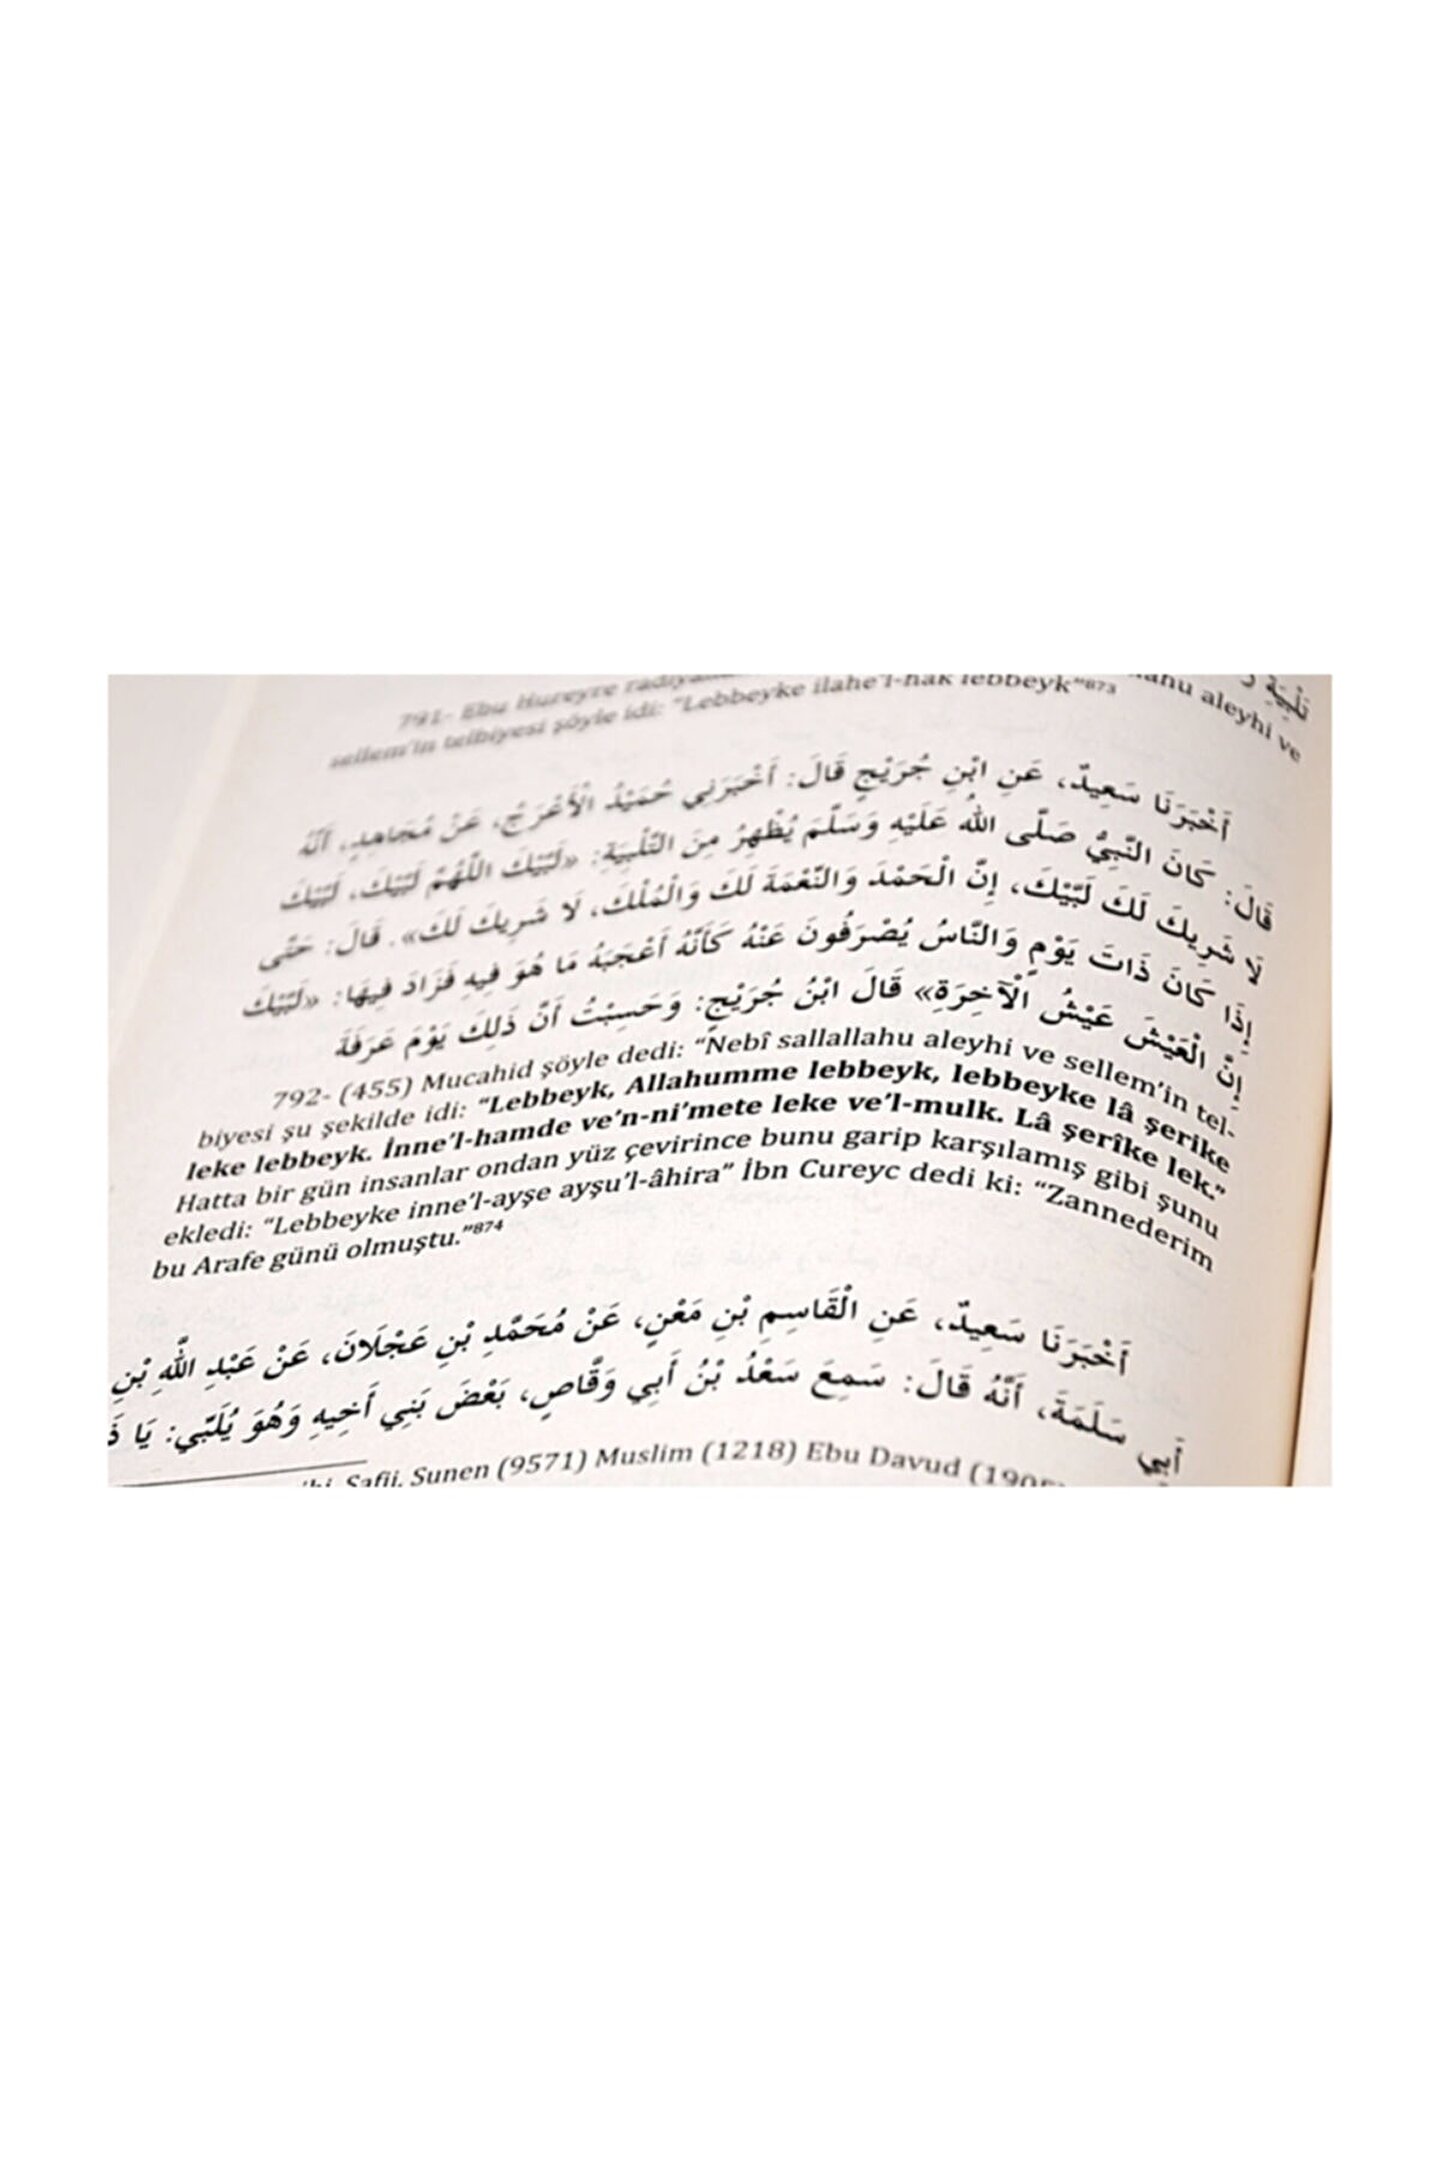 791- Ebu Hureyre aleyhi ve
sellem'in telbiyesi şöyle idi: "Lebbeyke ilahe'l-hak lebbeyk"873
أَخْبَرَنَا سَعِيدٌ، عَنِ ابْنِ جُرَيْجٍ قَالَ: أَخْبَرَنِي حُمَيْدُ الْأَعْرَجُ، عَنْ مُجَاهِدٍ، أَنَّهُ
قَالَ: كَانَ النَّبِيُّ صَلَّى اللهُ عَلَيْهِ وَسَلَّمَ يُظْهِرُ مِنَ التَّلْبِيَةِ: «لَبَّيْكَ اللَّهُمَّ لَبَّيْكَ، لَبَّيْكَ
لَا شَرِيكَ لَكَ لَبَّيْكَ، إِنَّ الْحَمْدَ وَالنِّعْمَةَ لَكَ وَالْمُلْكَ، لَا شَرِيكَ لَكَ». قَالَ: حَتَّى
إِذَا كَانَ ذَاتَ يَوْمٍ وَالنَّاسُ يُصْرَفُونَ عَنْهُ كَأَنَّهُ أَعْجَبَهُ مَا هُوَ فِيهِ فَزَادَ فِيهَا: «لَبَّيْكَ
إِنَّ الْعَيْشَ عَيْشُ الْآخِرَةِ» قَالَ ابْنُ جُرَيْجٍ: وَحَسِبْتُ أَنَّ ذَلِكَ يَوْمَ عَرَفَةَ
792- (455) Mucahid şöyle dedi: "Nebî sallallahu aleyhi ve sellem'in tel-
biyesi şu şekilde idi: "Lebbeyk, Allahumme lebbeyk, lebbeyke lâ şerike
leke lebbeyk. İnne'l-hamde ve'n-ni'mete leke ve'l-mulk. Lâ şerîke lek."
Hatta bir gün insanlar ondan yüz çevirince bunu garip karşılamış gibi şunu
ekledi: "Lebbeyke inne'l-ayşe ayşu'l-âhira" İbn Cureyc dedi ki: "Zannederim
bu Arafe günü olmuştu."874
أَخْبَرَنَا سَعِيدٌ، عَنِ الْقَاسِمِ بْنِ مَعْنٍ، عَنْ مُحَمَّدِ بْنِ عَجْلَانَ، عَنْ عَبْدِ اللَّهِ بْنِ
أَبِي سَلَمَةَ، أَنَّهُ قَالَ: سَمِعَ سَعْدُ بْنُ أَبِي وَقَّاصٍ، بَعْضَ بَنِي أَخِيهِ وَهُوَ يُلَبِّي: يَا
Safii, Sunen (9571) Muslim (1218) Ebu Davud